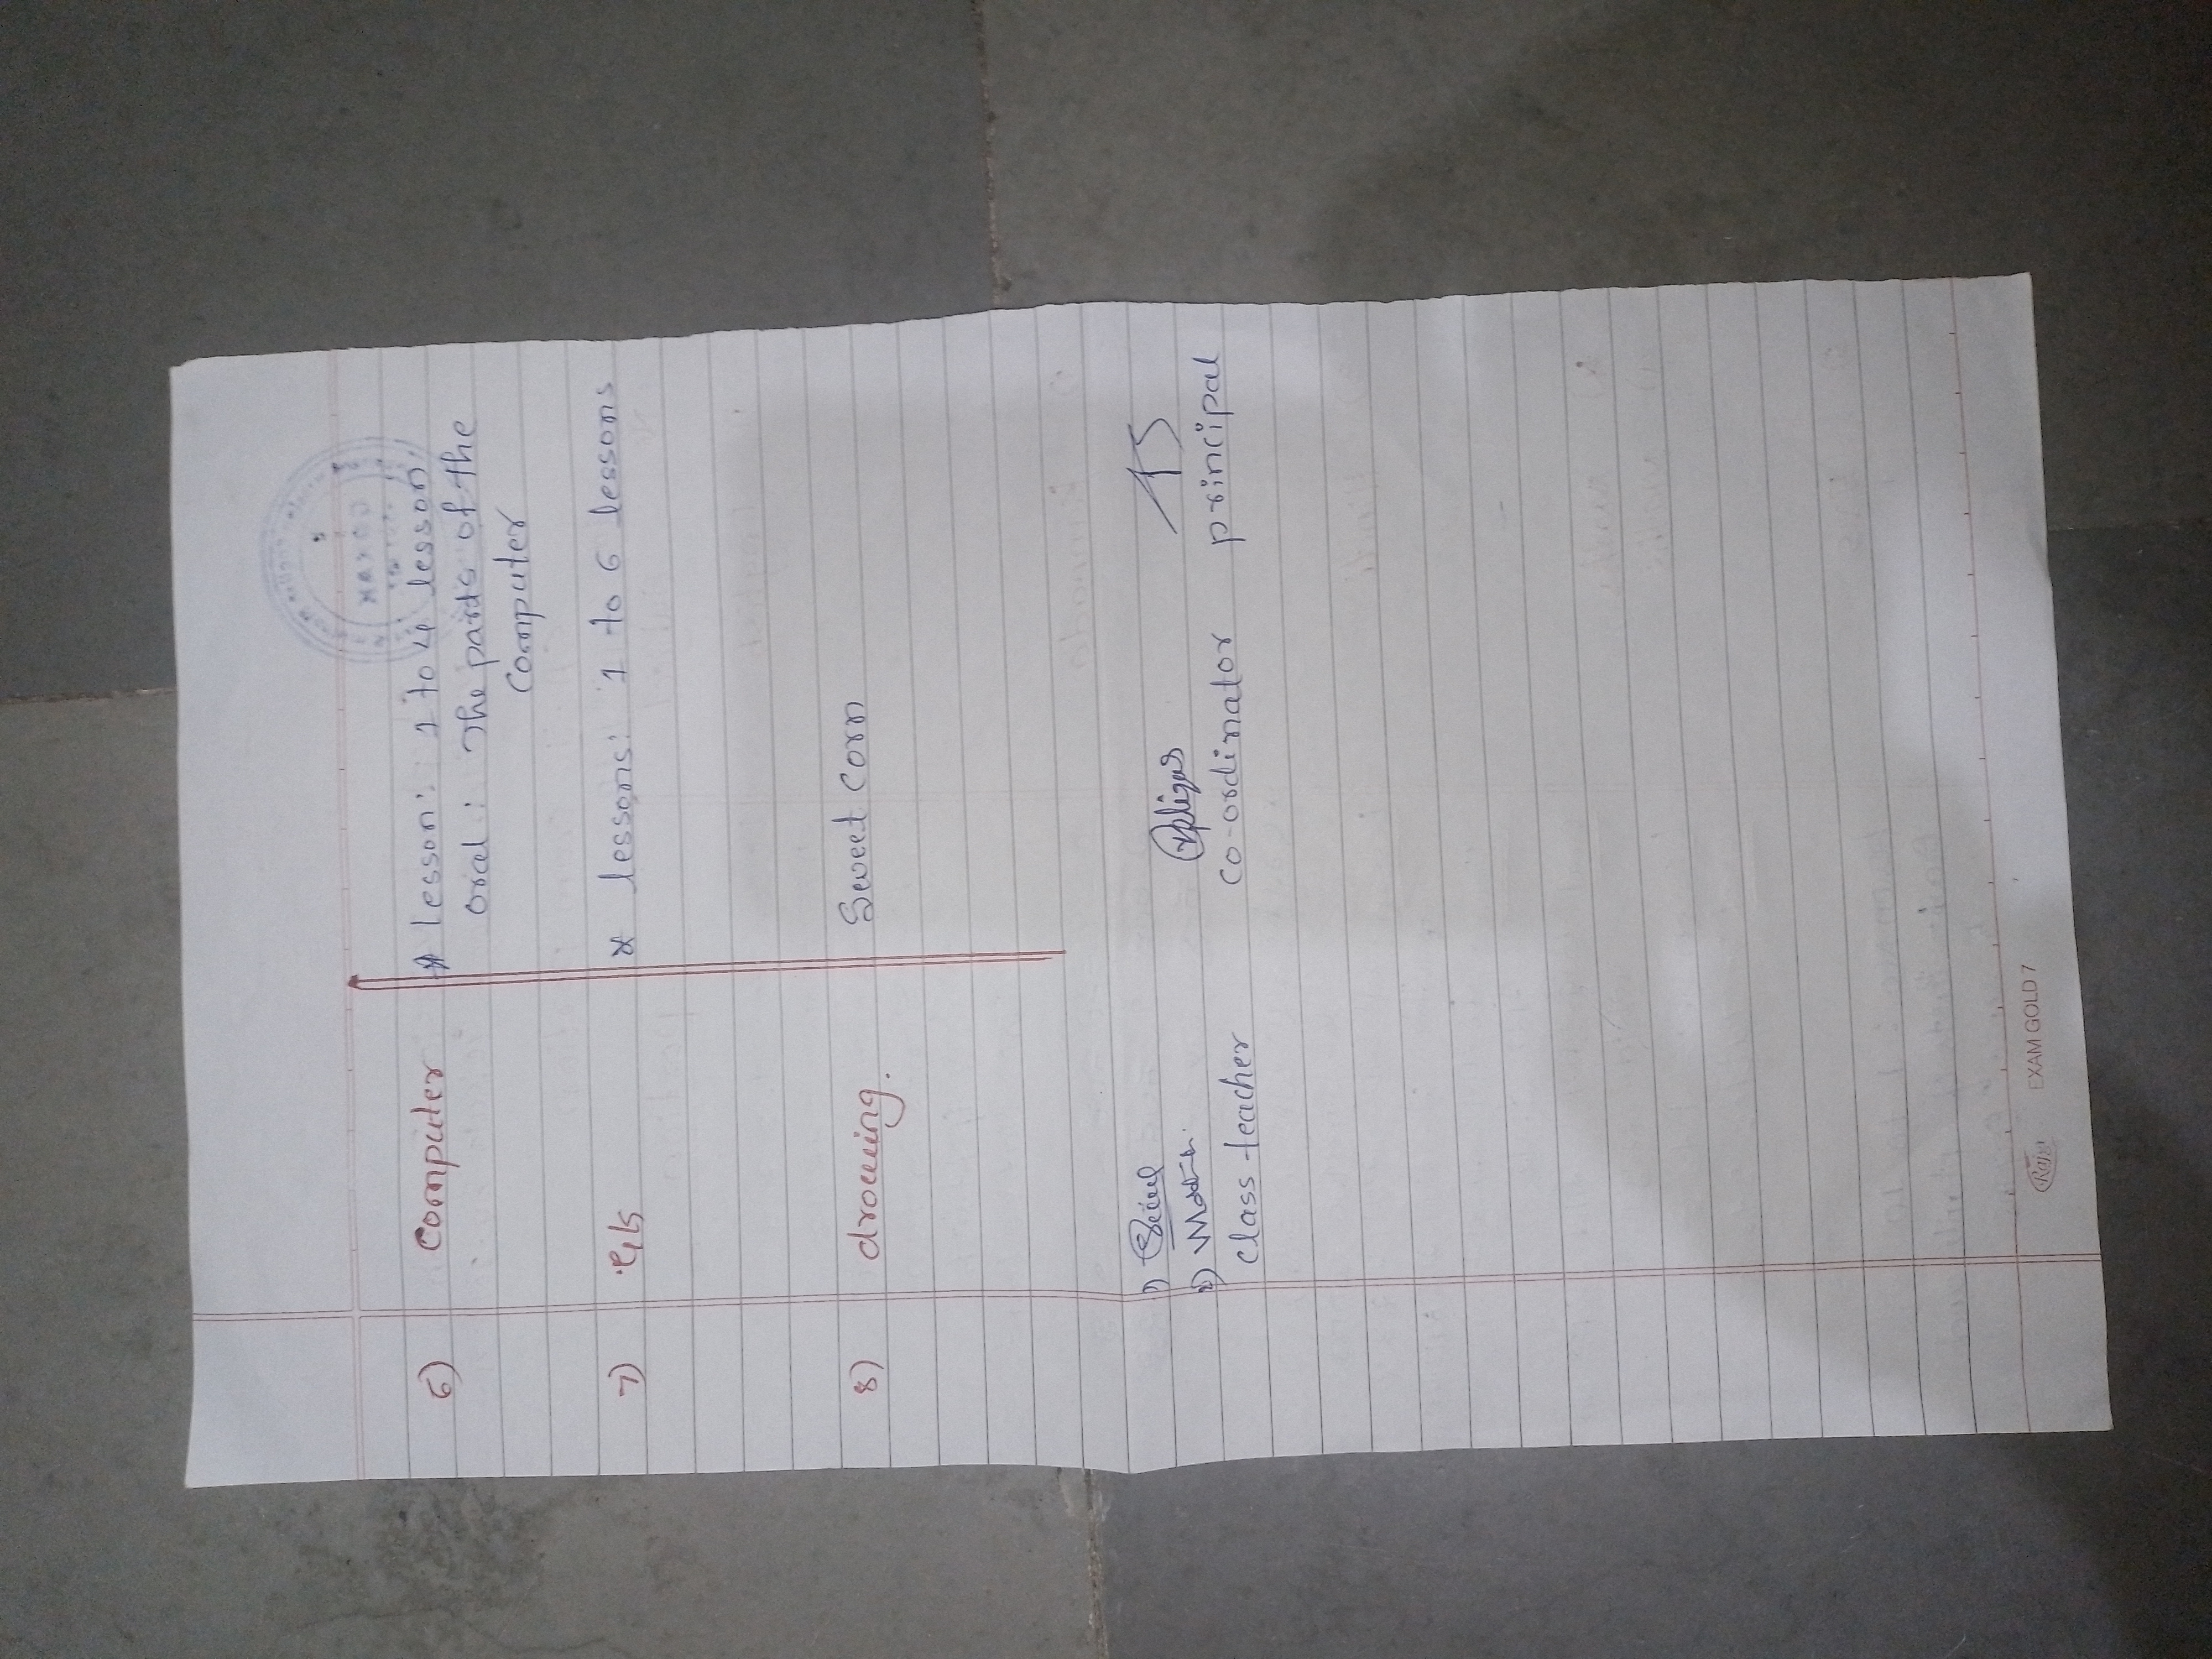 6) Computer * lesson: 1 to 4 lesson
oral: The parts of the
Computer
7) G.K * lessons: 1 to 6 lessons
8) drowing. Sweet Corn
1)
2)
class teacher co-ordinator principal
Raja EXAM GOLD 7